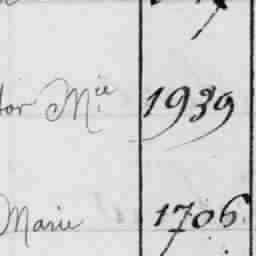 tor M.ie 1939
Marie 1706.